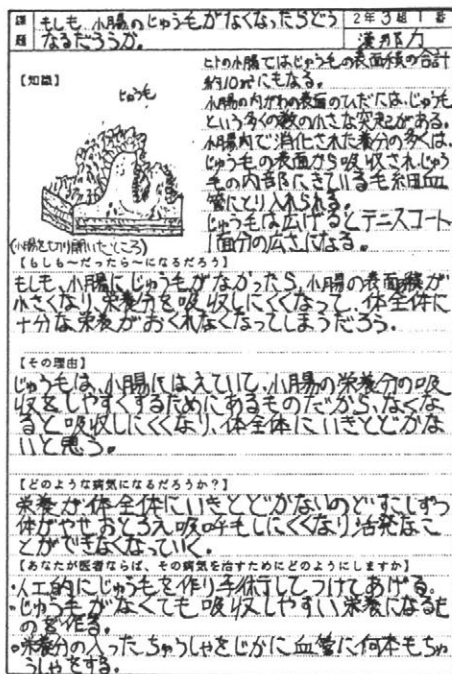 課題
もしも、小腸のじゅう毛がなくなったらどう
なるだろうか。
2年3組1番
【知識】
じゅう毛
(小腸を切り開いたところ)
ヒトの小腸ではじゅう毛の表面積の合計
約10㎡にもなる。
小腸の内がわの表面のひだには、じゅう毛
という多くの数の小さな突起がある。
小腸内で消化された養分の多くは、
じゅう毛の表面から吸収され、じゅう
毛の内部にきている毛細血
管にとり入れられる。
じゅう毛は広げるとテニスコート
1面分の広さになる。
【もしも~だったら~になるだろう】
もしも、小腸にじゅう毛がなかったら、小腸の表面積が
小さくなり、栄養分を吸収しにくくなって、体全体に
十分な栄養がおくれなくなってしまうだろう。
【その理由】
じゅう毛は、小腸にはえていて、小腸の栄養分の吸
収をしやすくするためにあるものだから、なくな
ると吸収しにくくなり、体全体にいきとどかな
いと思う。
【どのような病気になるだろうか?】
栄養が体全体にいきとどかないのですこしずつ
体がやせおとろえ呼吸もしにくくなり活発なこ
とができなくなっていく。
【あなたが医者ならば、その病気を治すためにどのようにしますか】
・人工的にじゅう毛を作り手術してつけてあげる。
・じゅう毛がなくても吸収しやすい栄養になるも
のを作る。
・栄養分の入ったちゅうしゃをじかに血管に何本もちゅ
うしゃをする。